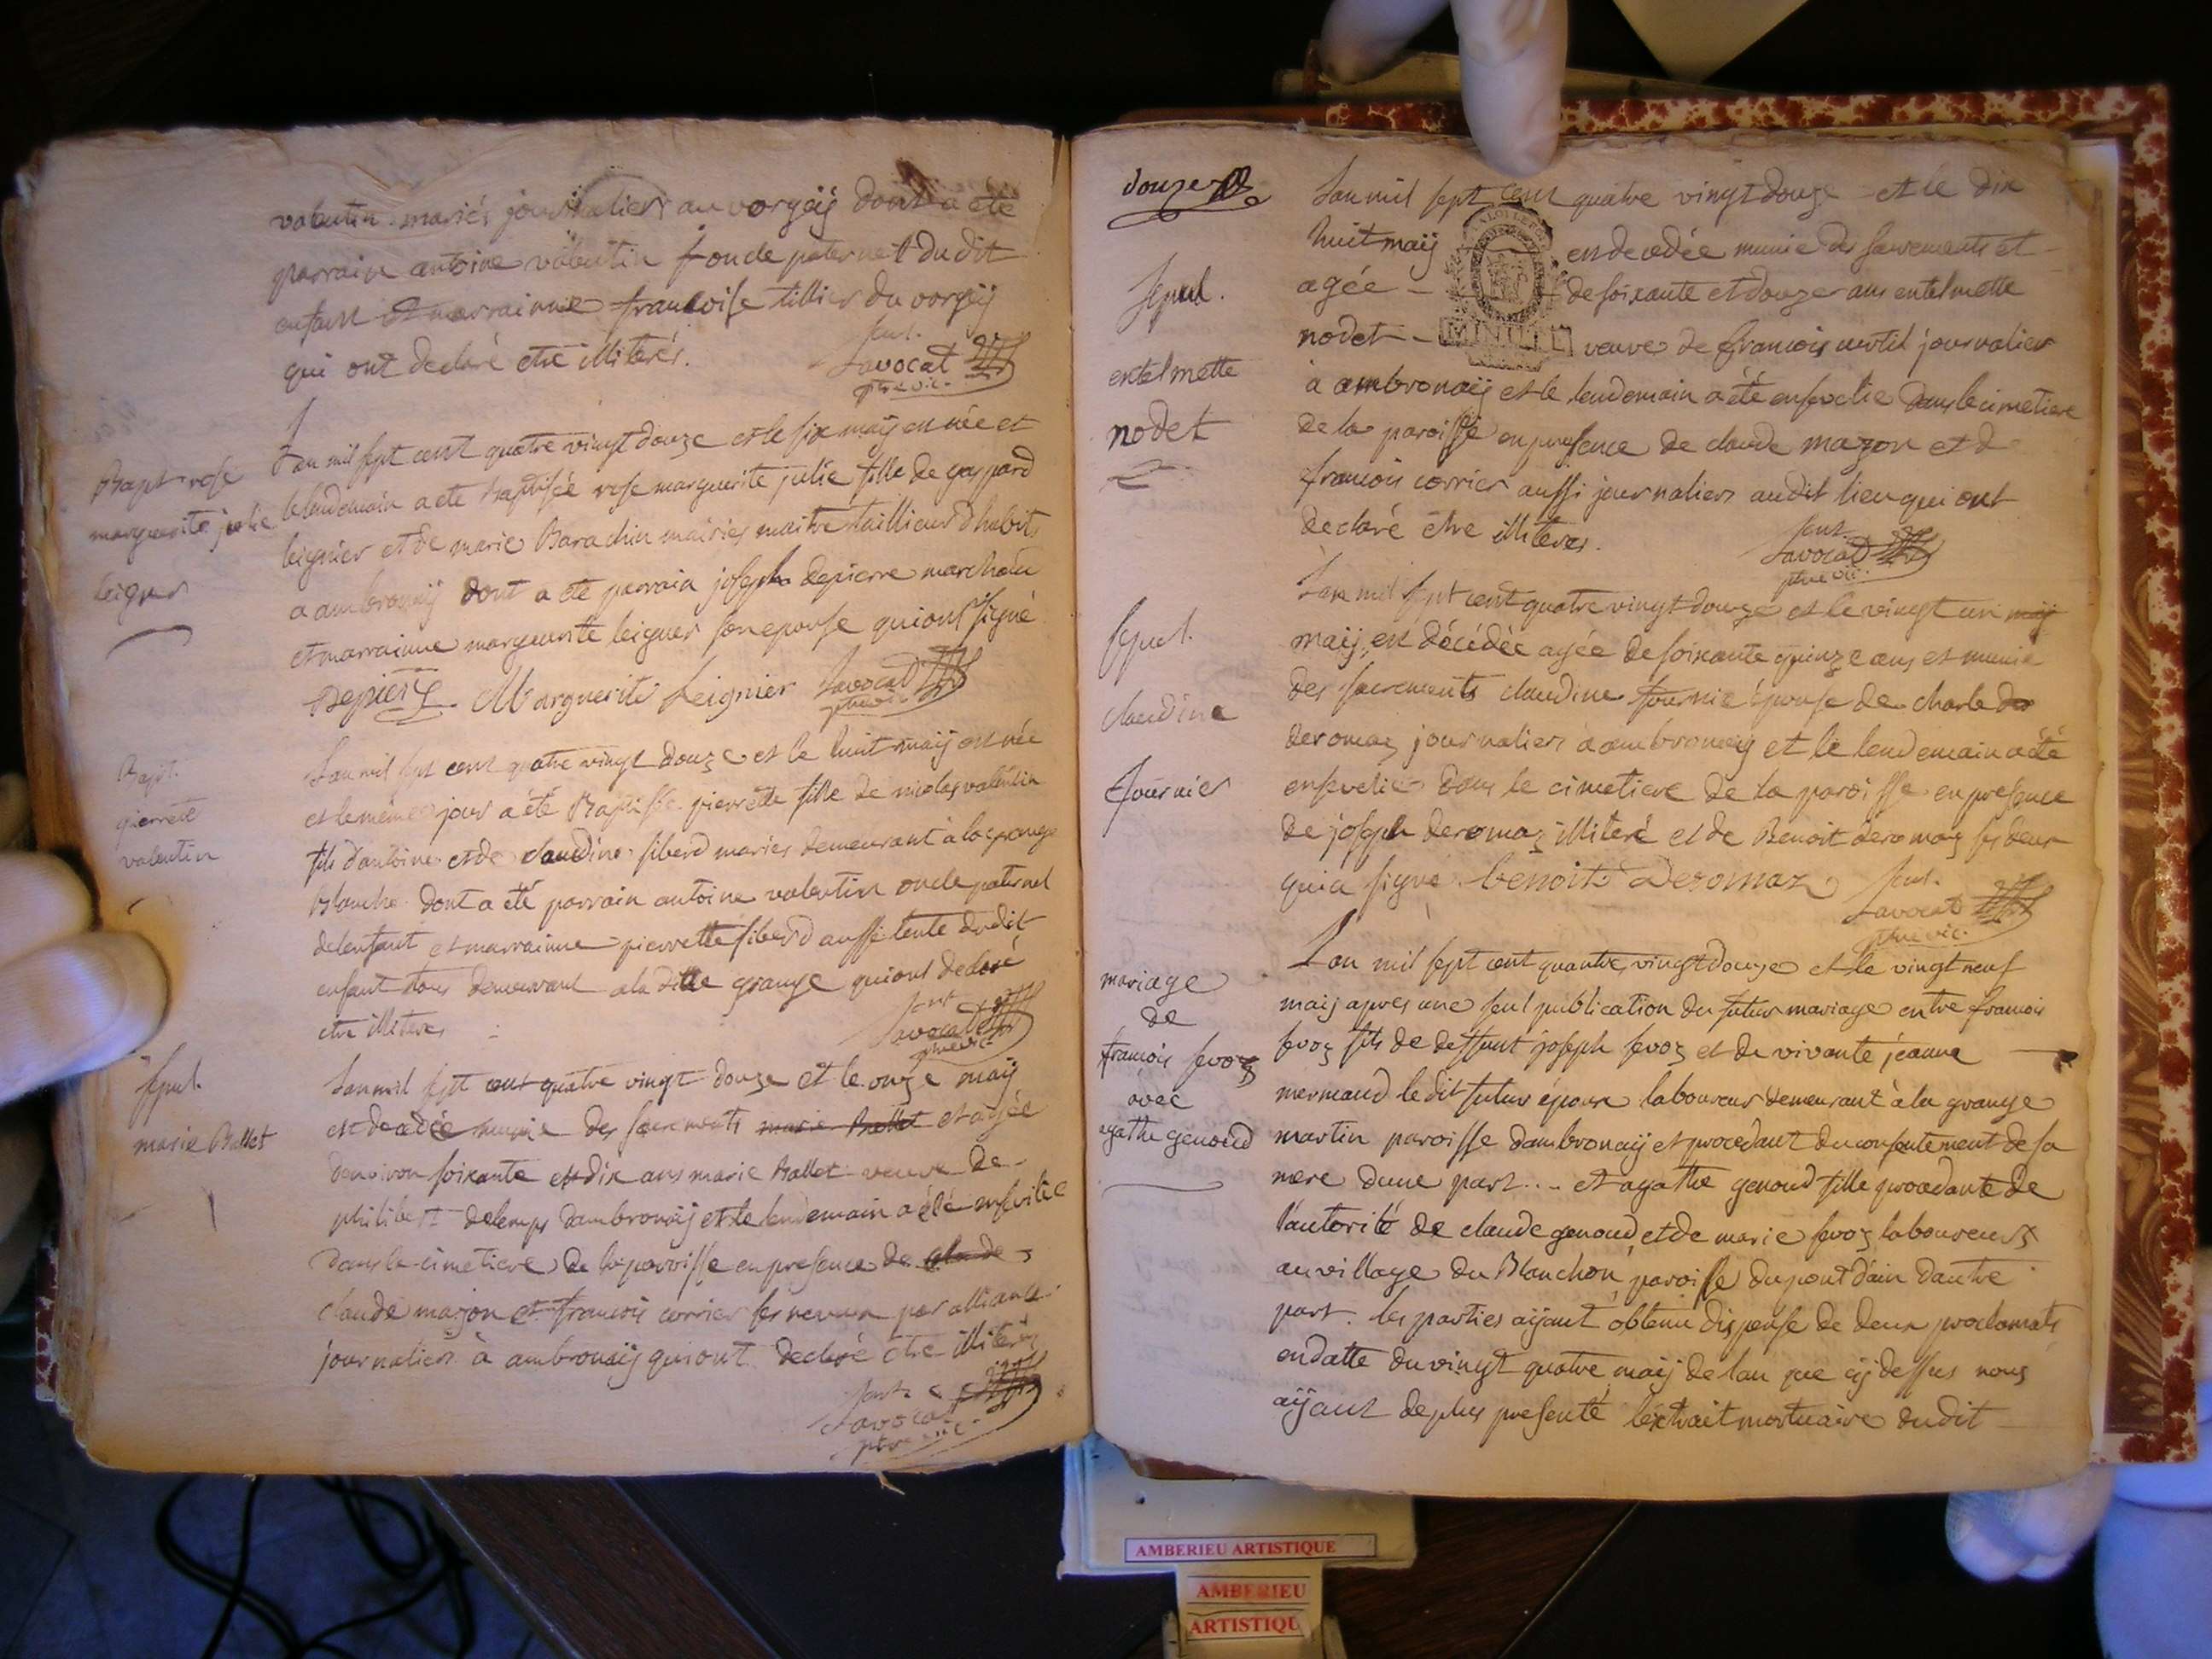 valentin mariés journaliers au vorgey dont a été
parrain antoine valentin foncle paternel dudit
enfant et marrainne francoise tillier du vorgeÿ
qui ont declaré etre illiterés.
sent.
Lavocat
ptre vic.
Bapt rose
marguerite julie
leigner
L'an mil sept cent quatre vingt douze et le six maÿ en née et
le lendemain a ete baptisée rose marguerite julie fille de gaspard
leignier et de marie Barachin mairies maitre taillieur d'habits
a ambronaÿ dont a ete parrain joseph depierre marchand
et marrainne marguerite leignier son epouse qui ont signé
Depierre Marguerite Leignier Lavocat
ptre vic
Bapt.
pierrete
valentin
L'an mil sept cent quatre vingt douze et le huit maÿ est née
et le même jour a été Baptisée pierrette fille de nicolas valentin
fils d'antoine et de claudine siberd mariés demeurant à la grange
Blanche dont a été parrain antoine valentin oncle paternel
de lenfant et marrainne pierrette siberd aussi tente dudit
enfant tous demeurant a la ditte grange qui ont declaré
etre illiteres
sent
Lavocat
ptre vic
sepul.
marie Ballet
L'an mil sept cent quatre vingt douze et le onze maÿ
est decedée munie des sacrements marie Ballet et agée
denviron soixante et dix ans marie Ballet veuve de
philibert delemps dambronaÿ et le lendemain a été ensevelie
dans le cimetiere de la paroisse en presence de claude
claude mazon et francois corrier ses neveux par alliance
journaliers à ambronaÿ qui ont declaré etre illiterés
sent.
Lavocat
ptre vic
douze
Sepul.
entelmette
nodet
L'an mil sept cent quatre vingt douze et le dix
huit maÿ est decedée munie des sacrements et
agée de soixante et douze ans entelmette
nodet veuve de francois journalier
MINUTE
à ambronaÿ et le lendemain a été ensevelie dans le cimetiere
de la paroisse en presence de claude mazon et d
francois corrier aussi journaliers audit lieu qui ont
declaré etre illiteres.
sent
Lavocat
ptre vic.
sepul.
claudine
fournier
L'an mil sept cent quatre vingt douze et le vingt un maÿ
maÿ est décédée agée de soixante quinze ans et munie
des sacrements claudine fournie épouse de charle de
deromaz journaliers à ambronaÿ et le lendemain a été
ensevelie dans le cimetiere de la paroisse en presence
de joseph deromaz illiteré et de Benoit deromaz ses deux
qui a signé. benoit Deromaz sent.
Lavocat
ptre vic.
mariage
de
francois sevoz
avec
agathe genoud
L'an mil sept cent quantre vingt douze et le vingt neuf
maij apres une seul publication du futur mariage entre francois
sevoz fils de deffunt joseph sevoz et de vivante jeanne
mermand le dit futur époux laboureur demeurant à la grange
martin paroisse dambronaÿ et procedant du consentement de sa
mere dune part... et agathe genoud fille procedante de
l'autorité de claude genoud et de marie sevoz laboureurs
au village du Blanchon paroisse du pont d'ain dautre
part. les parties aÿant obtenu dispense de deux proclamats
en datte du vingt quatre maij de lan que cÿ dessus nous
aÿant de plus presenté l'extrait mortuaire dudit
AMBERIEU ARTISTIQUE
AMBERIEU
ARTISTIQU